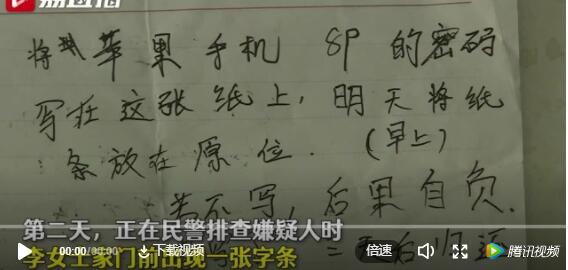 将我苹果手机 8P 的密码
写在这张纸上，明天将纸
条放在原位．(早上)
若不写，后果自负．
第二天，正在民警排查嫌疑人时
李女士家门前出现一张字条
00:00/00:00
倍速
腾讯视频